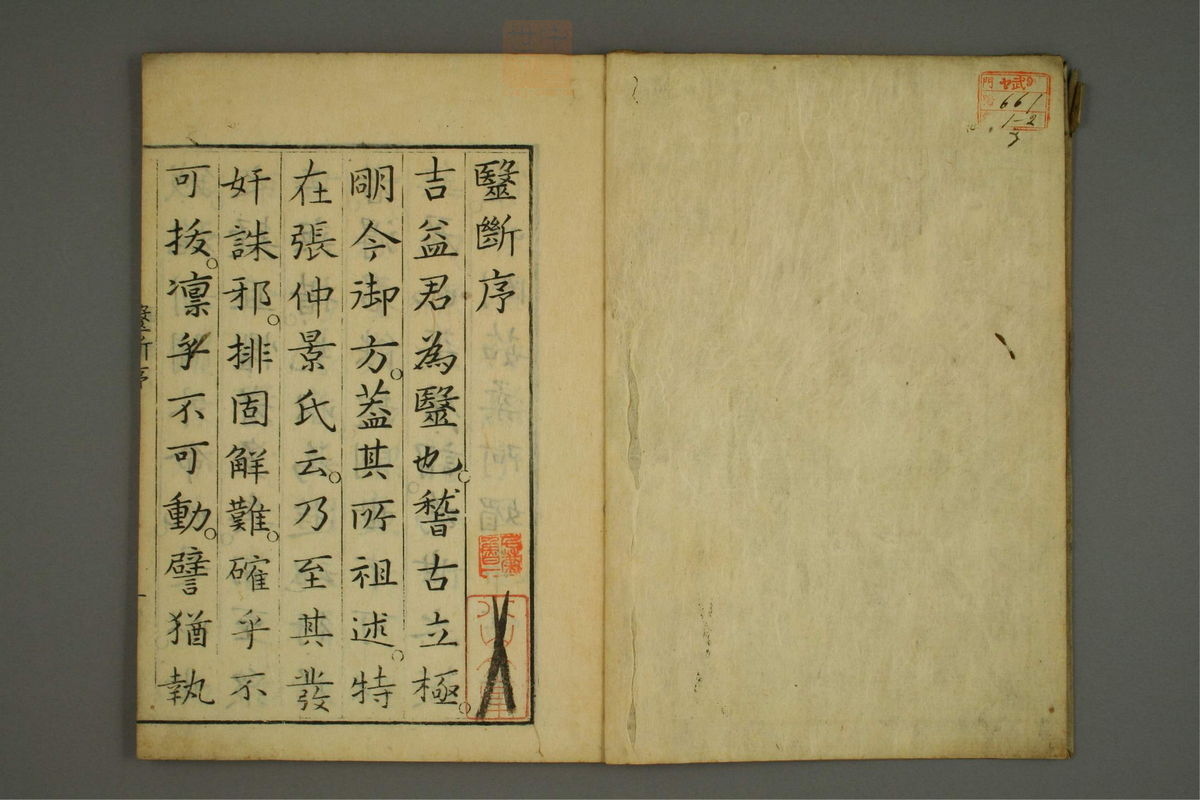 毉斷序
吉益君為毉也。稽古立極。
明今御方。葢其所祖述。特
在張仲景氏云。乃至其發
奸誅邪。排固解難。確乎不
可拔。凜乎不可動。譬猶執
毉斷序
661
1-2
3